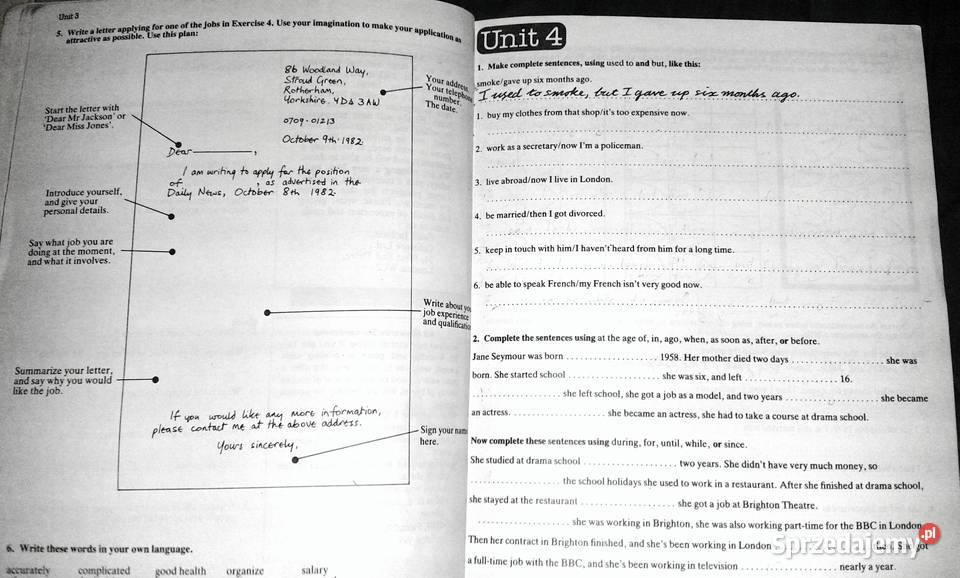 Unit 3
5. Write a letter applying for one of the jobs in Exercise 4. Use your imagination to make your application as
attractive as possible. Use this plan:
86 Woodland Way,
Stroud Green,
Rotherham,
Yorkshire. YD4 3AW
0709-01213
October 9th 1982.
Your address.
Your telephone
number.
The date.
Start the letter with
'Dear Mr Jackson' or
'Dear Miss Jones'.
Dear ,
I am writing to apply for the position
of , as advertised in the
Daily News, October 8th 1982.
Introduce yourself,
and give your
personal details.
Say what job you are
doing at the moment,
and what it involves.
Write about you
job experience
and qualificatio
Summarize your letter,
and say why you would
like the job.
If you would like any more information,
please contact me at the above address.
Yours sincerely,
Sign your name
here.
6. Write these words in your own language.
accurately complicated good health organize salary
Unit 4
1. Make complete sentences, using used to and but, like this:
smoke/gave up six months ago.
I used to smoke, but I gave up six months ago.
1. buy my clothes from that shop/it's too expensive now.
2. work as a secretary/now I'm a policeman.
3. live abroad/now I live in London.
4. be married/then I got divorced.
5. keep in touch with him/I haven't heard from him for a long time.
6. be able to speak French/my French isn't very good now.
2. Complete the sentences using at the age of, in, ago, when, as soon as, after, or before.
Jane Seymour was born .................... 1958. Her mother died two days .................... she was
born. She started school .................... she was six, and left .................... 16.
.................... she left school, she got a job as a model, and two years .................... she became
an actress. .................... she became an actress, she had to take a course at drama school.
Now complete these sentences using during, for, until, while, or since.
She studied at drama school .................... two years. She didn't have very much money, so
.................... the school holidays she used to work in a restaurant. After she finished at drama school,
she stayed at the restaurant .................... she got a job at Brighton Theatre.
.................... she was working in Brighton, she was also working part-time for the BBC in London.
Then her contract in Brighton finished, and she's been working in London got
a full-time job with the BBC, and she's been working in television .................... nearly a year.
Sprzedajemy.pl